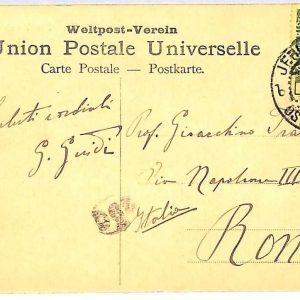 Weltpost-Verein
Union Postale Universelle
Carte Postale — Postkarte.
Saluti cordiali
G. Guidi
Prof. Gioacchino
Via Napoleone III
Italia
Rom
JER